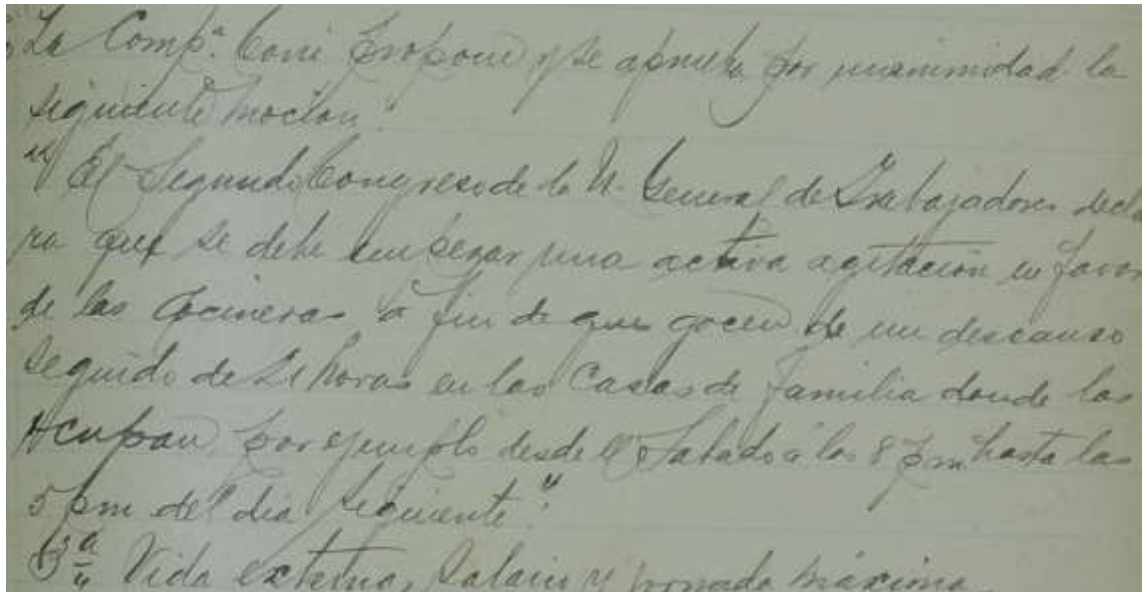 La Compª. Coni propone y se aprueba por unanimidad la
siguiente mocion:
"El Segundo Congreso de la U. General de Trabajadores decla
ra que se debe empezar una activa agitacion en favor
de las cocineras á fin de que gocen de un descanso
seguido de 21 horas en las Casas de familia donde las
ocupan, por ejemplo desde el Sabado á las 8 pm hasta las
5 pm del dia siguiente".
3ª Vida externa, Salario y jornada máxima